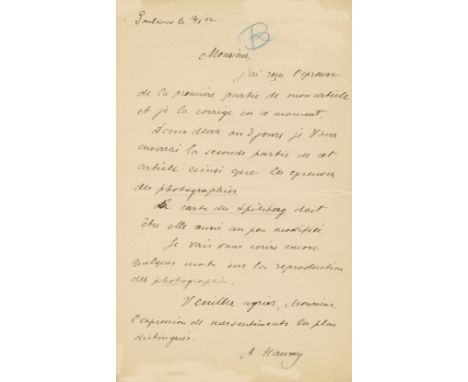 Monsieur,
j'ai reçu l'épreuve
de la première partie de mon article
et je la corrige en ce moment.
Dans deux ou 3 jours je vous
enverrai la seconde partie de cet
article ainsi que les épreuves
des photographies
La carte du Spitsberg doit
être elle aussi un peu modifiée
Je vais vous écrire encore
quelques mots sur la reproduction
des photographies.
Veuillez agréer, Monsieur,
l'expression de mes sentiments les plus
distingués.
A